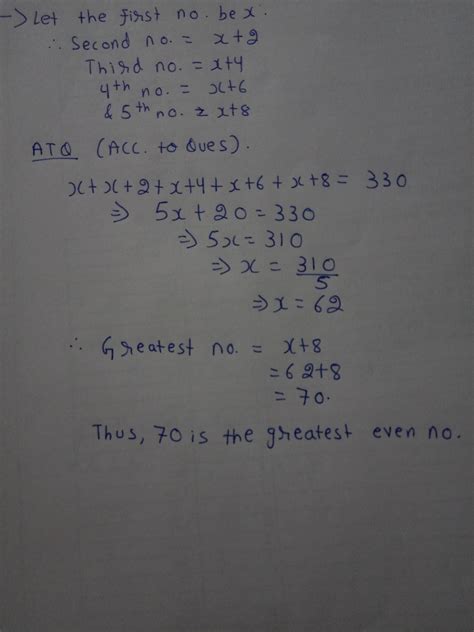 -> Let the first no. be x.
∴ Second no. = x+2
Third no. = x+4
4th no. = x+6
& 5th no. = x+8
ATQ (Acc. to Ques).
x+x+2+x+4+x+6+x+8= 330
⇒ 5x+20=330
⇒5x=310
⇒ x = 310/5
⇒x=62
∴ Greatest no. = x+8
=62+8
= 70.
Thus, 70 is the greatest even no.